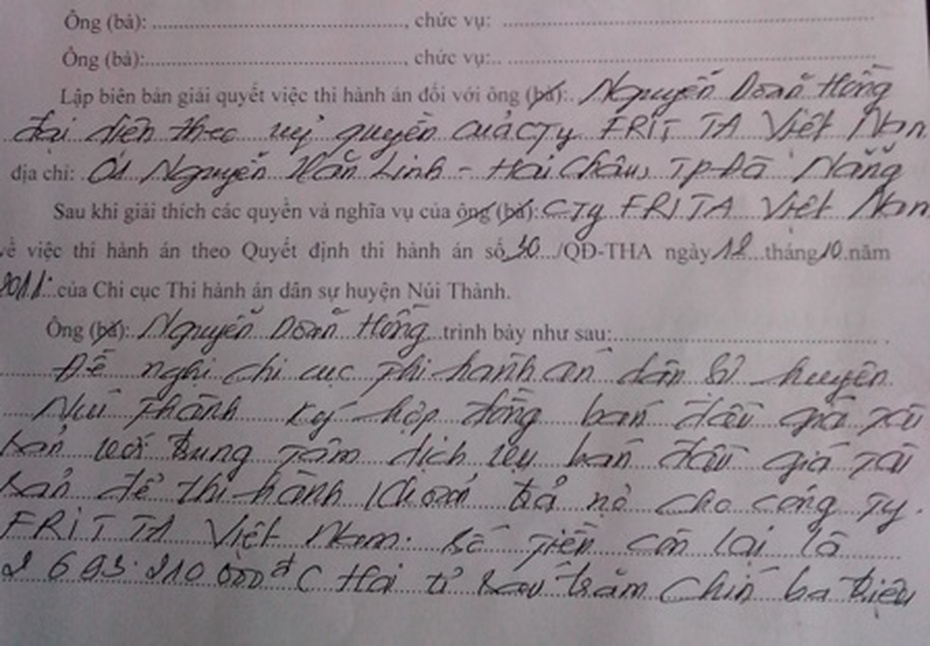 Ông (bà): ......................................, chức vụ: ......................................
Ông (bà):......................................, chức vụ:.. ......................................
Lập biên bản giải quyết việc thi hành án đối với ông (bà):. Nguyễn Doãn Hồng
đại diện theo uỷ quyền của CTy FRIT TA Việt Nam
địa chỉ: 01 Nguyễn Văn Linh - Hải Châu, TP Đà Nẵng
Sau khi giải thích các quyền và nghĩa vụ của ông (bà): CTy FRITA Việt Nam
về việc thi hành án theo Quyết định thi hành án số 30.../QĐ-THA ngày 18...tháng 10.năm
2011...của Chi cục Thi hành án dân sự huyện Núi Thành.
Ông (bà): Nguyễn Doãn Hồng trình bày như sau:......................................
Đề nghị chi cục Thi hành án dân sự huyện
Núi Thành ký hợp đồng bán đấu giá tài
sản với Trung tâm dịch vụ bán đấu giá tài
sản để thi hành khoản trả nợ cho công ty.
FRIT TA Việt Nam. Số tiền còn lại là
2 693.210 000đ ( Hai tỉ sáu trăm chín ba triệu